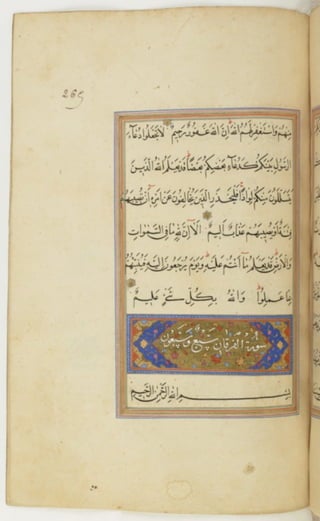 265
مِنْهُمْ وَاسْتَغْفِرْ لَهُمُ اللَّهَ اِنَّ اللَّهَ غَفُورٌ رَحِيمٌ لَا تَجْعَلُوا دُعَاءَ
الرَّسُولِ بَيْنَكُمْ كَدُعَاءِ بَعْضِكُمْ بَعْضًا قَدْ يَعْلَمُ اللَّهُ الَّذِينَ
يَتَسَلَّلُونَ مِنْكُمْ لِوَاذًا فَلْيَحْذَرِ الَّذِينَ يُخَالِفُونَ عَنْ اَمْرِهِ اَنْ تُصِيبَهُمْ
فِتْنَةٌ اَوْ يُصِيبَهُمْ عَذَابٌ اَلِيمٌ اَلَا اِنَّ لِلَّهِ مَا فِي السَّمٰوَاتِ
وَالْاَرْضِ قَدْ يَعْلَمُ مَا اَنْتُمْ عَلَيْهِ وَيَوْمَ يُرْجَعُونَ اِلَيْهِ فَيُنَبِّئُهُمْ
بِمَا عَمِلُوا وَاللَّهُ بِكُلِّ شَيْءٍ عَلِيمٌ
سورة الفرقان سبع وسبعون
بِسْمِ اللَّهِ الرَّحْمٰنِ الرَّحِيمِ